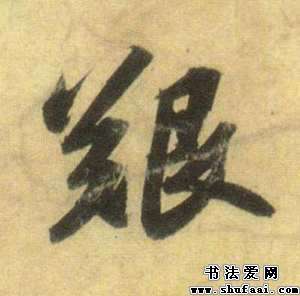 艱
书法爱网
www.shufaai.com